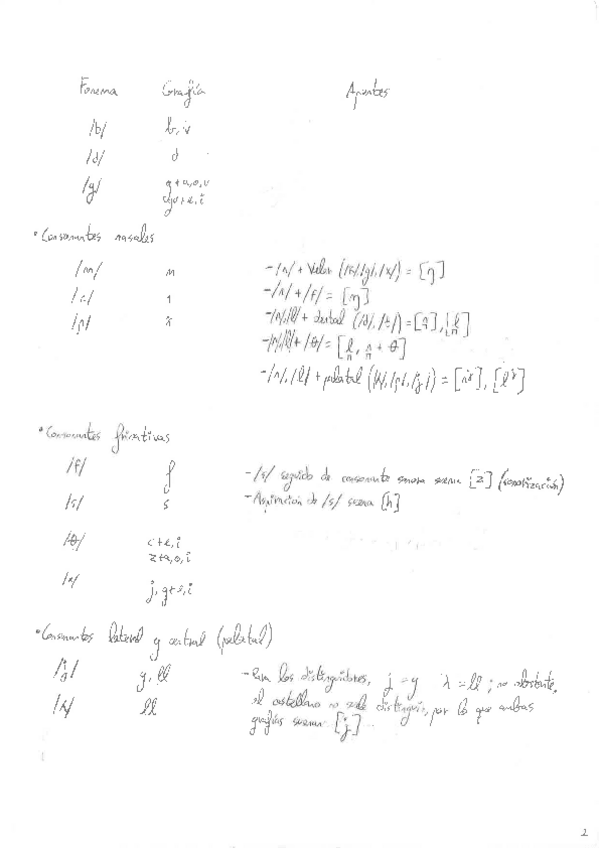 Fonema Grafía Apuntes
/b/ b, v
/d/ d
/g/ g+a,o,u
gu+e,i
•Consonantes nasales
/m/ m -/n/ + velar (/k/,/g/,/x/) = [ŋ]
/n/ n -/n/+/f/ = [ɱ]
/ɲ/ ñ -/n/,/l/ + dental (/d/,/t/)=[n̪],[l̪]
-/n/,/l/+/θ/=
-/n/,/l/ + palatal
•Consonantes fricativas
/f/ f
/s/ s -/s/ seguido de consonante sonora suena [z] (sonorización)
-Aspiración de /s/ suena [h]
/θ/ c+e,i
z+a,o,i
/x/ j, g+e,i
•Consonantes lateral y central (palatal)
/ʝ/ y, ll -Para los distinguidores, ʝ=y ʎ=ll; no obstante,
/ʎ/ ll el castellano no suele distinguir, por lo que ambas
grafías suenan [ʝ]
2